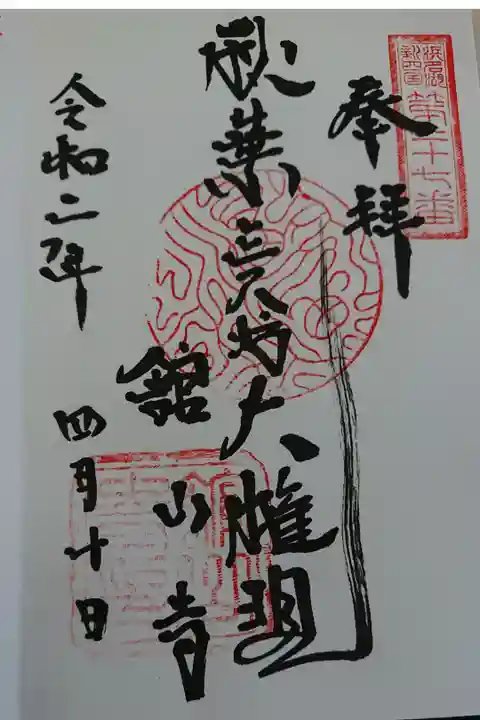 浜名湖
新四国
第三十七番
奉拝
秋葉三尺坊大権現
舘山寺
令和二年
四月十日